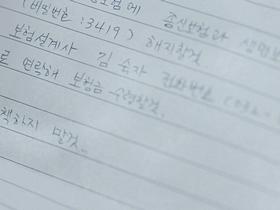 (비밀번호 : 3419) 해지할것
보험설계사 김 숙자 전화번호
로 연락해 보험금 수령할것.
책하지 말것.